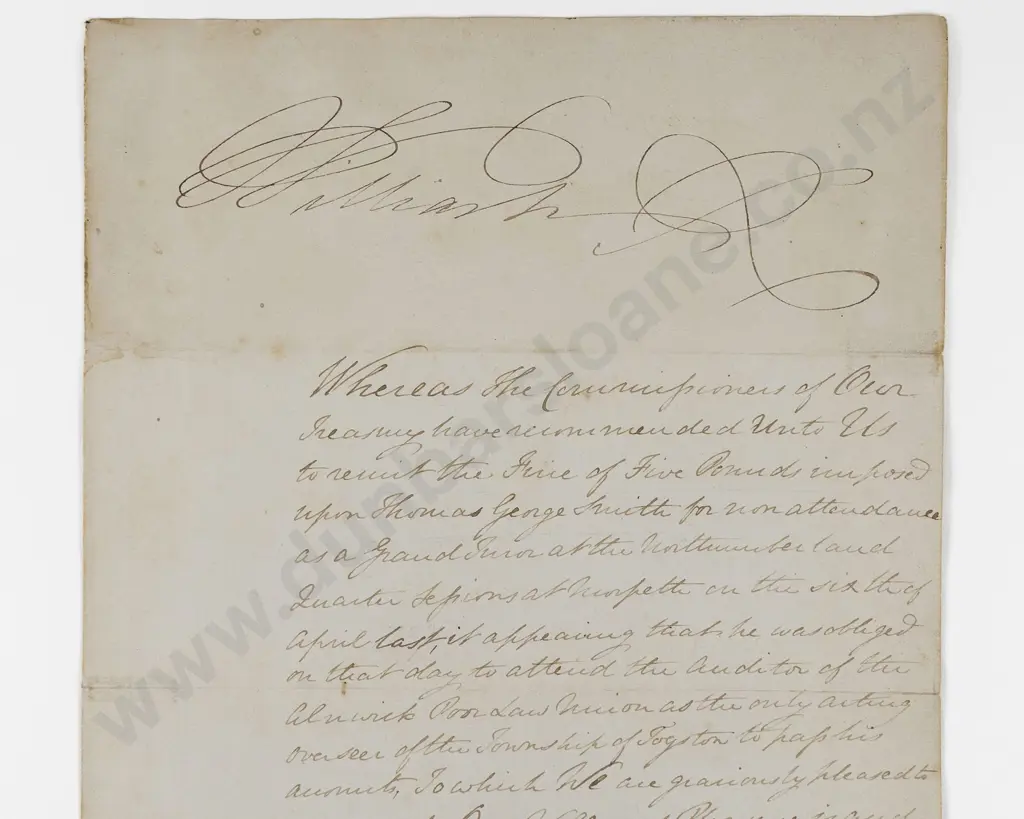 William R
Whereas The Commissioners of Our
Treasury have recommended Unto Us
to remit the Fine of Five Pounds imposed
upon Thomas George Smith for non attendance
as a Grand Juror at the Northumberland
Quarter Sessions at Morpeth on the sixth of
April last, it appearing that he was obliged
on that day to attend the Auditor of the
Alnwick Poor Law Union as the only acting
overseer of the Township of Togston to pass his
accounts, To which We are graciously pleased to
www.dunbarsloane.co.nz